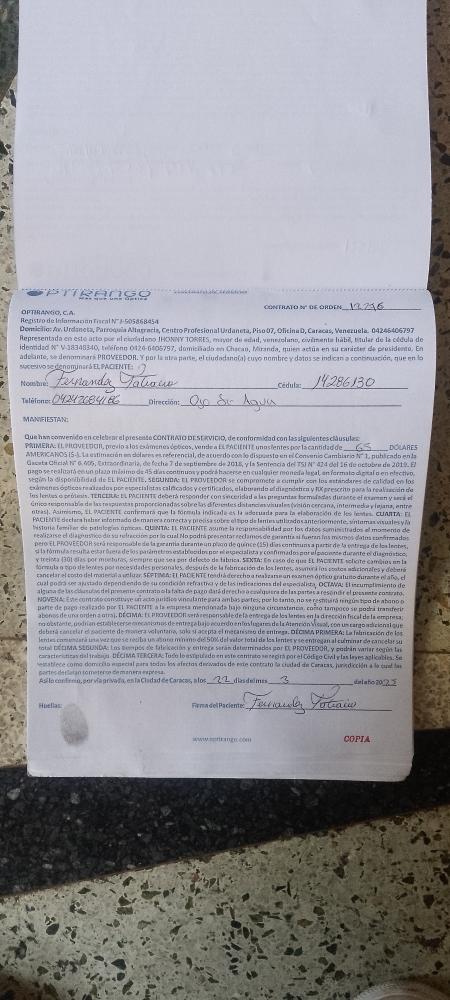 OPTIRANGO
Más que una Óptica
CONTRATO N° DE ORDEN
OPTIRANGO, C.A.
Registro de Información Fiscal N° J-505868454
Domicilio: Av. Urdaneta, Parroquia Altagracia, Centro Profesional Urdaneta, Piso 07, Oficina D, Caracas, Venezuela. 04246406797
Representada en este acto por el ciudadano JHONNY TORRES, mayor de edad, venezolano, civilmente hábil, titular de la cédula de
identidad N° V-18340340, teléfono 0424-6406797, domiciliado en Chacao, Miranda, quien actúa en su carácter de presidente. En
adelante, se denominará PROVEEDOR. Y por la otra parte, el ciudadano(a) cuyo nombre y datos se indican a continuación, que en lo
sucesivo se denominará EL PACIENTE:
Nombre: Fernandez Cédula: 14286130
Teléfono: Dirección: Ojo De Agua
MANIFIESTAN:
Que han convenido en celebrar el presente CONTRATO DE SERVICIO, de conformidad con las siguientes cláusulas:
PRIMERA: EL PROVEEDOR, previo a los exámenes ópticos, vende a EL PACIENTE unos lentes por la cantidad de 65 DÓLARES
AMERICANOS ($-). La estimación en dólares es referencial, de acuerdo con lo dispuesto en el Convenio Cambiario N° 1, publicado en la
Gaceta Oficial N° 6.405, Extraordinaria, de fecha 7 de septiembre de 2018, y la Sentencia del TSJ N° 424 del 16 de octubre de 2019. El
pago se realizará en un plazo máximo de 45 días continuos y podrá hacerse en cualquier moneda legal, en formato digital o en efectivo,
según la disponibilidad de EL PACIENTE. SEGUNDA: EL PROVEEDOR se compromete a cumplir con los estándares de calidad en los
exámenes ópticos realizados por especialistas calificados y certificados, elaborando el diagnóstico y RX prescrito para la realización de
los lentes o prótesis. TERCERA: EL PACIENTE deberá responder con sinceridad a las preguntas formuladas durante el examen y será el
único responsable de las respuestas proporcionadas sobre las diferentes distancias visuales (visión cercana, intermedia y lejana, entre
otras). Asimismo, EL PACIENTE confirmará que la fórmula indicada es la adecuada para la elaboración de los lentes. CUARTA: EL
PACIENTE declara haber informado de manera correcta y precisa sobre el tipo de lentes utilizados anteriormente, síntomas visuales y la
historia familiar de patologías ópticas. QUINTA: EL PACIENTE asume la responsabilidad por los datos suministrados al momento de
realizarse el diagnóstico de su refracción por lo cual No podrá presentar reclamos de garantía si fueran los mismos datos confirmados
pero EL PROVEEDOR será responsable de la garantía durante un plazo de quince (15) días continuos a partir de la entrega de los lentes,
si la fórmula resulta estar fuera de los parámetros establecidos por el especialista y confirmados por el paciente durante el diagnóstico,
y treinta (30) días por monturas, siempre que sea por defecto de fábrica. SEXTA: En caso de que EL PACIENTE solicite cambios en la
fórmula o tipo de lentes por necesidades personales, después de la fabricación de los lentes, asumirá los costos adicionales y deberá
cancelar el costo del material a utilizar. SÉPTIMA: EL PACIENTE tendrá derecho a realizarse un examen óptico gratuito durante el año, el
cual podrá ser ajustado dependiendo de su condición refractiva y de las indicaciones del especialista. OCTAVA: El incumplimiento de
alguna de las cláusulas del presente contrato o la falta de pago dará derecho a cualquiera de las partes a resindir el presente contrato.
NOVENA: Este contrato constituye un acto jurídico vinculante para ambas partes; por lo tanto, no se restituirá ningún tipo de abono o
parte de pago realizado por EL PACIENTE a la empresa mencionada bajo ninguna circunstancia, como tampoco se podrá transferir
abonos de una orden a otra. DÉCIMA: EL PROVEEDOR será responsable de la entrega de los lentes en la dirección fiscal de la empresa;
no obstante, podrán establecerse mecanismos de entrega bajo acuerdo en los lugares de la Atención Visual, con un cargo adicional que
deberá cancelar el paciente de manera voluntaria, solo si acepta el mecanismo de entrega. DÉCIMA PRIMERA: La fabricación de los
lentes comenzará una vez que se reciba un abono mínimo del 50% del valor total de los lentes y se entregan al culminar de cancelar su
total DÉCIMA SEGUNDA: Los tiempos de fabricación y entrega serán determinados por EL PROVEEDOR, y podrán variar según las
características del trabajo. DÉCIMA TERCERA: Todo lo estipulado en este contrato se regirá por el Código Civil y las leyes aplicables. Se
establece como domicilio especial para todos los efectos derivados de este contrato la ciudad de Caracas, jurisdicción a la cual las
partes declaran someterse de manera expresa.
Así lo confirmo, por vía privada, en la Ciudad de Caracas, a los 22 días del mes 3 del año 2025
Huellas: Firma del Paciente: Fernandez
www.optirango.com COPIA